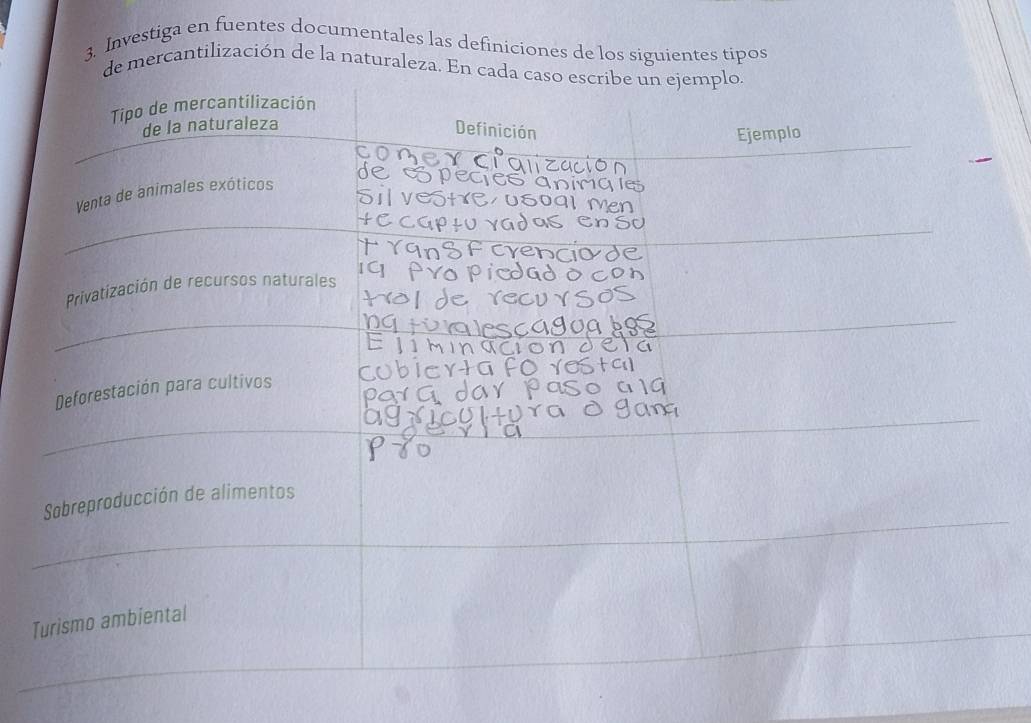 3. Investiga en fuentes documentales las definiciones de los siguientes tipos
de mercantilización de la naturaleza. En cada caso escribe un ejemplo.
Tipo de mercantilización
de la naturaleza
Definición
Ejemplo
Venta de animales exóticos
comercialización
de especies animales
silvestre, usoal men
te capturadas en su
Privatización de recursos naturales
transferenciade
la propiedad o con
trol de recursos
naturalescagoa
Deforestación para cultivos
Eliminacion dela
cobierta forestal
para dar paso ala
agricultura o gana
deria
Sobreproducción de alimentos
pro
Turismo ambiental